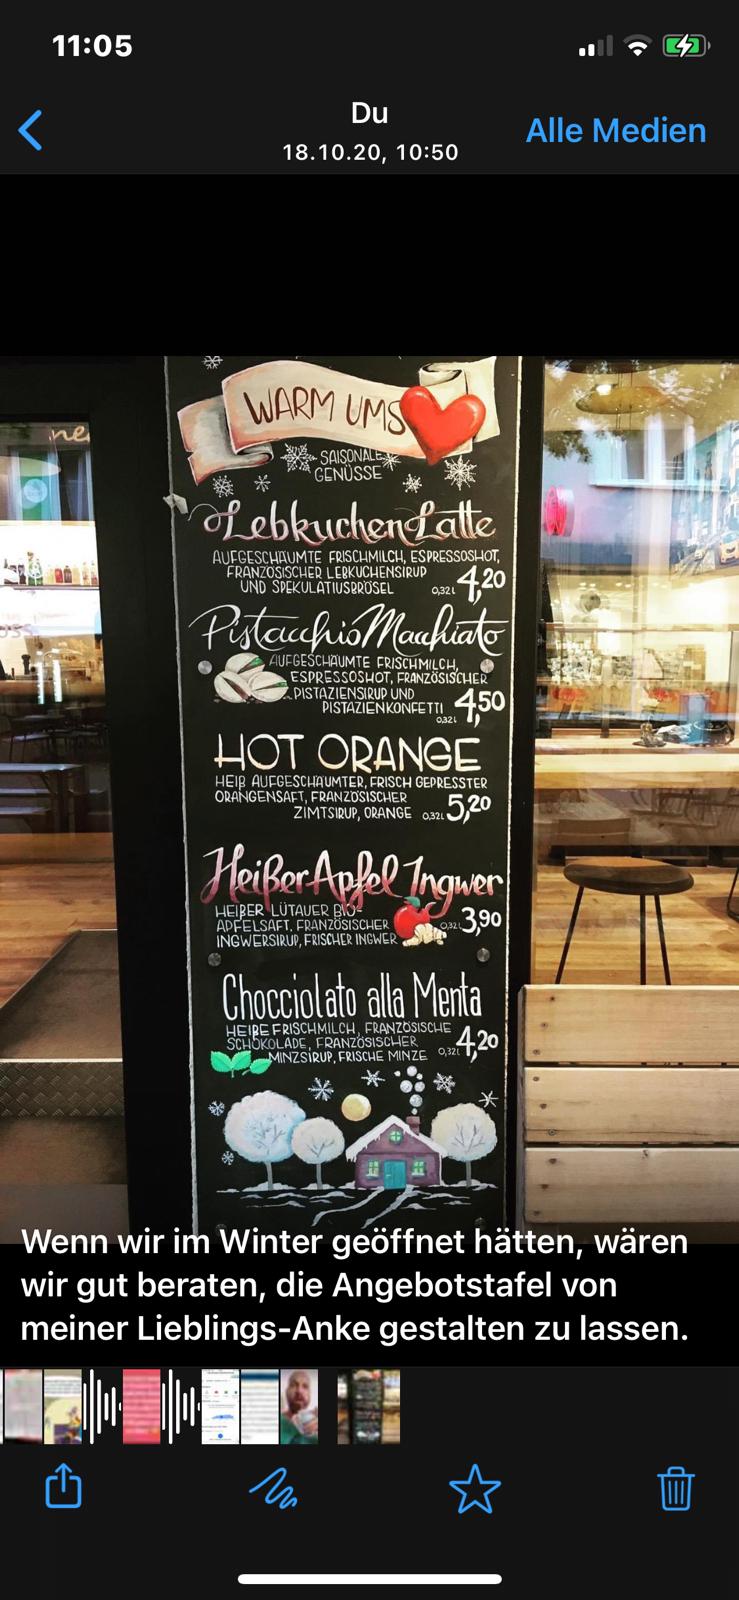 11:05
Du
18.10.20, 10:50
Alle Medien
WARM UMS
SAISONALE
GENÜSSE
Lebkuchen Latte
AUFGESCHÄUMTE FRISCHMILCH, ESPRESSOSHOT,
FRANZÖSISCHER LEBKUCHENSIRUP
UND SPEKULATIUSBRÖSEL 0,32L 4,20
Pistacchio Macchiato
AUFGESCHÄUMTE FRISCHMILCH,
ESPRESSOSHOT, FRANZÖSISCHER
PISTAZIENSIRUP UND
PISTAZIENKONFETTI 0,32L 4,50
HOT ORANGE
HEIß AUFGESCHÄUMTER, FRISCH GEPRESSTER
ORANGENSAFT, FRANZÖSISCHER
ZIMTSIRUP, ORANGE 0,32L 5,20
Heißer Apfel Ingwer
HEIßER LÜTAUER BIO-
APFELSAFT, FRANZÖSISCHER 0,32L 3,90
INGWERSIRUP, FRISCHER INGWER
Chocciolato alla Menta
HEIßE FRISCHMILCH, FRANZÖSISCHE
SCHOKOLADE, FRANZÖSISCHER
MINZSIRUP, FRISCHE MINZE 0,32L 4,20
Wenn wir im Winter geöffnet hätten, wären
wir gut beraten, die Angebotstafel von
meiner Lieblings-Anke gestalten zu lassen.